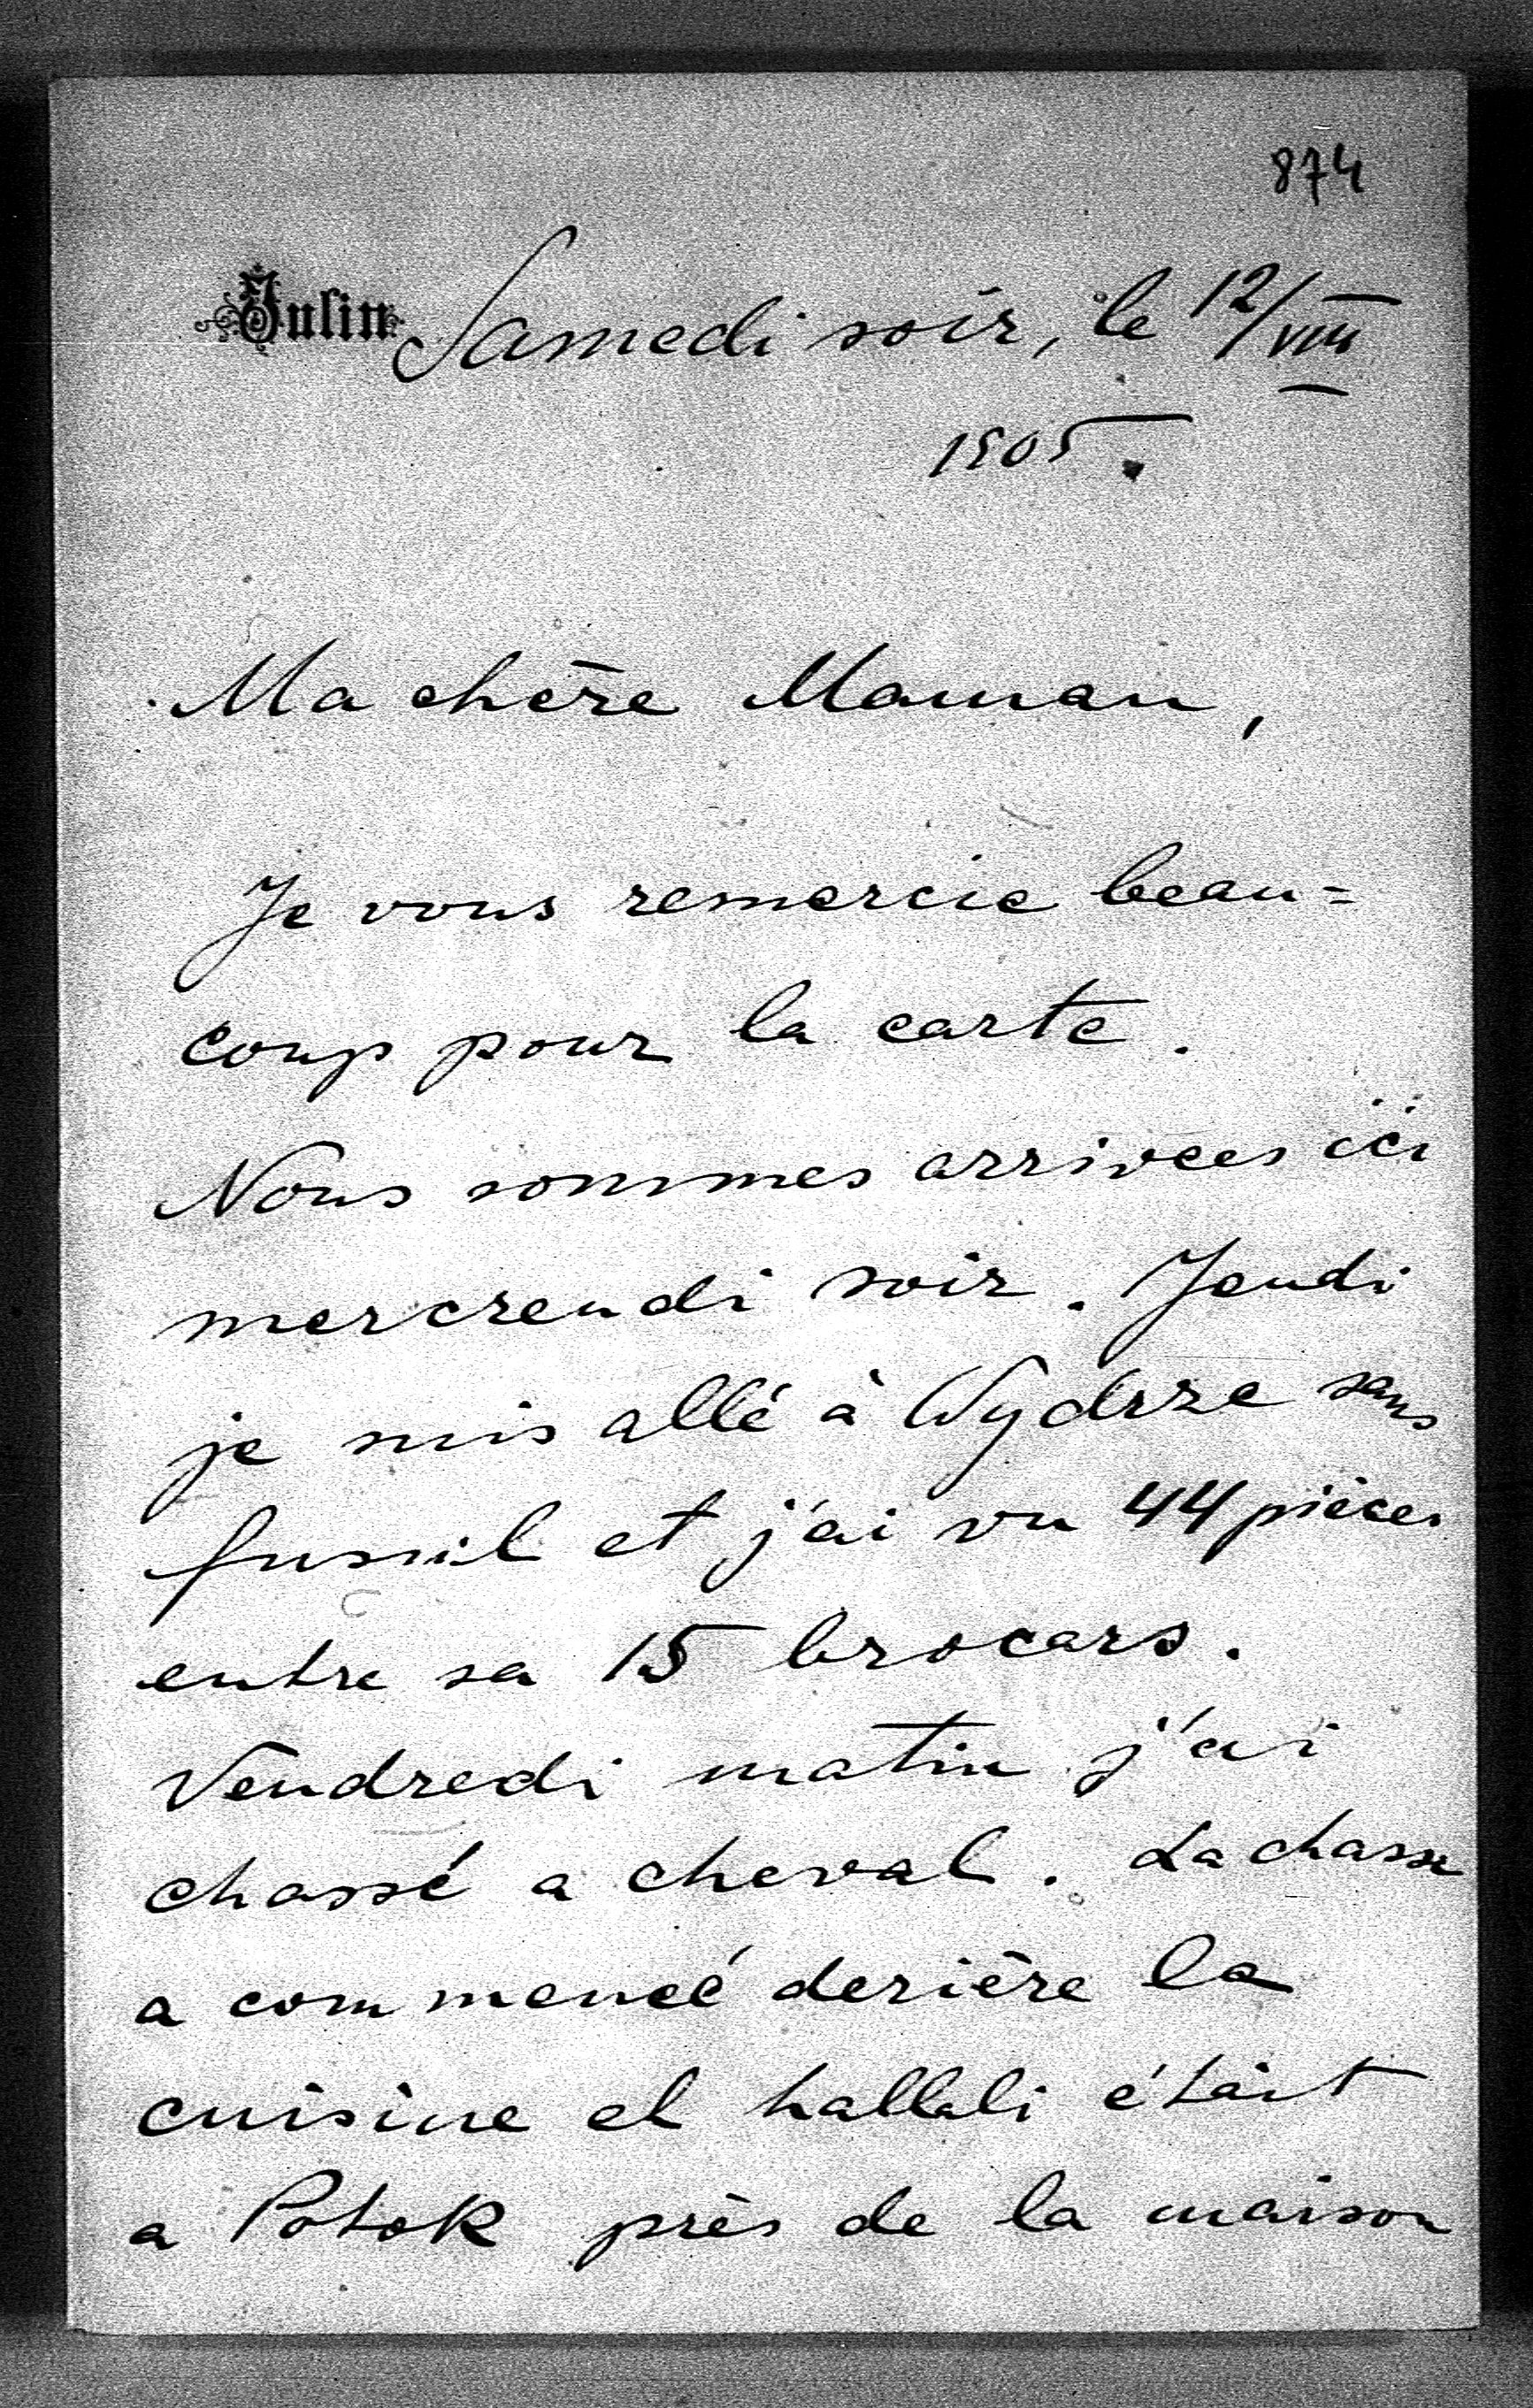 874
Julin Samedi soir, le 12/VIII
1905.
Ma chère Maman,
Je vous remercie beau=
coup pour la carte.
Nous sommes arrivees ici
mercrendi soir. Jeudi
je suis allé à Wydrze sans
fusuil et j'ai vu 44 pièces
entre sa 15 brocars.
Vendredi matin j'ai
chassé a cheval. La chasse
a commencé derière la
cuisine et hallali étàit
a Potok près de la maison